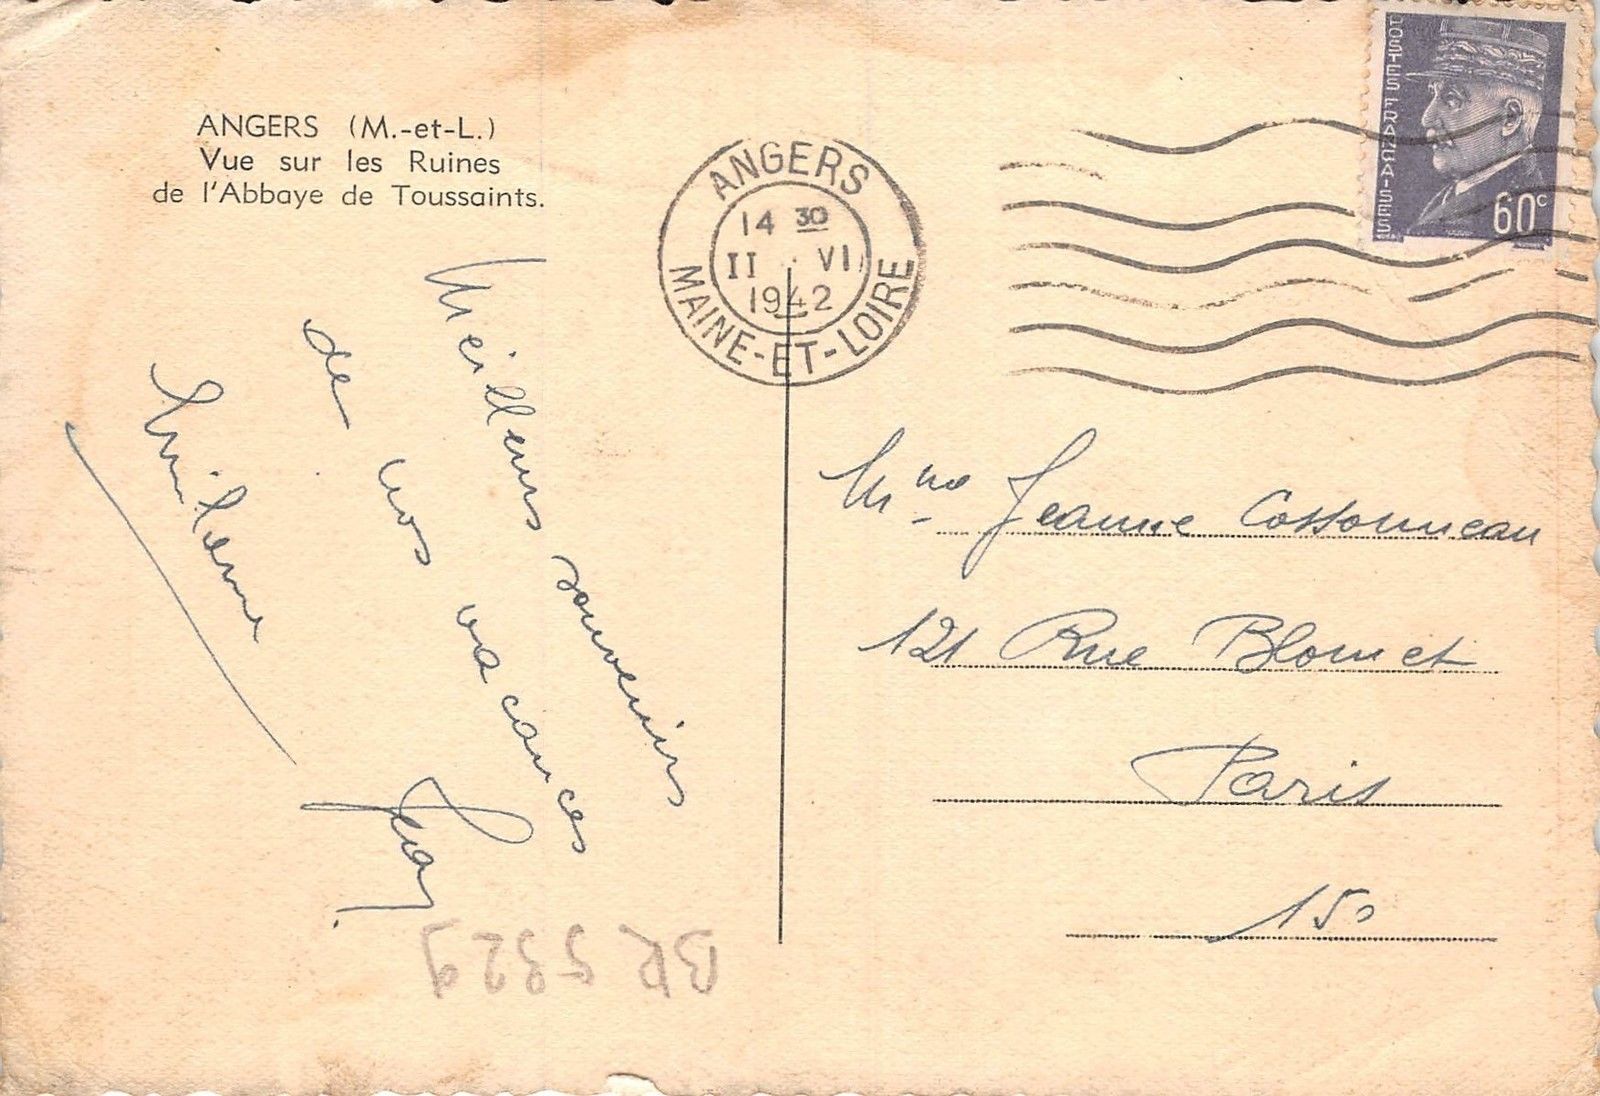 ANGERS (M.-et-L.)
Vue sur les Ruines
de l'Abbaye de Toussaints.
ANGERS
14 30
II VI
1942
MAINE-ET-LOIRE
POSTES FRANÇAISES
60c
Meilleurs souvenirs
de nos vacances
Mme Jeanne Cossonneau
121 Rue Blomet
Paris
15e
BR 5329